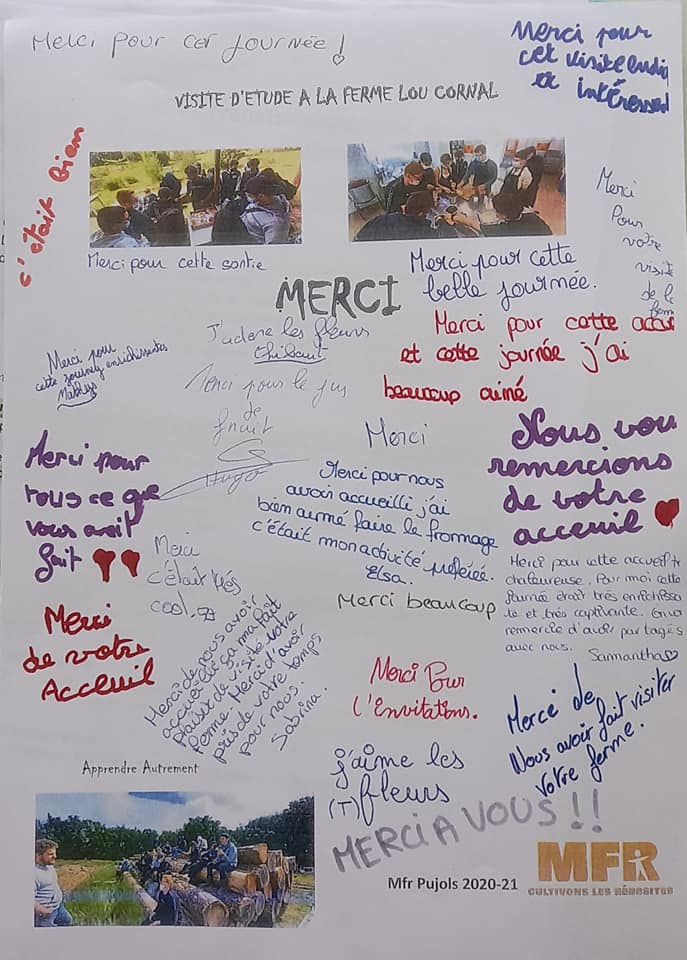 Merci pour cet journée !
Merci pour
cet visite ludi
et intéressen
VISITE D'ETUDE A LA FERME LOU CORNAL
c'était bien
Merci
Pour
votre
visite
de la
ferm
Merci pour cette sortie
Merci pour cette
belle journée.
MERCI
J'adore les fleurs
Thibaut
Merci pour cette accu
et cette journée j'ai
beaucoup aimé
Merci pour
cette journey enrichissantes
Mathys
Merci pour le jus
de
fruit
Hugo
Merci
Nous vou
remercions
de votre
acceuil
Merci pour
tous ce que
vous avait
fait
Merci pour nous
avoir accueilli j'ai
bien aimé faire le frommage
c'était mon activité préférée.
Elsa.
Merci
c'était très
cool.
Merci beaucoup
Merci pour cette accueil tr
chaleureuse. Pour moi cette
journée était très enrichissa
te et très captivante. On vo
remercie d'avoir partagés
avec nous.
Samantha
Merci
de votre
Acceuil
Merci de nous avoir
accueilli ça ma fait
plaisir de visité votre
ferme. Merci d'avoir
pris de votre temps
pour nous.
Sabrina.
Merci Pour
l'Envitations.
Merce de
Nous avoir fait visiter
votre ferme.
j'aime les
(T) fleurs
MERCI A VOUS !!
Apprendre Autrement
Mfr Pujols 2020-21
MFR
CULTIVONS LES RÉUSSITES